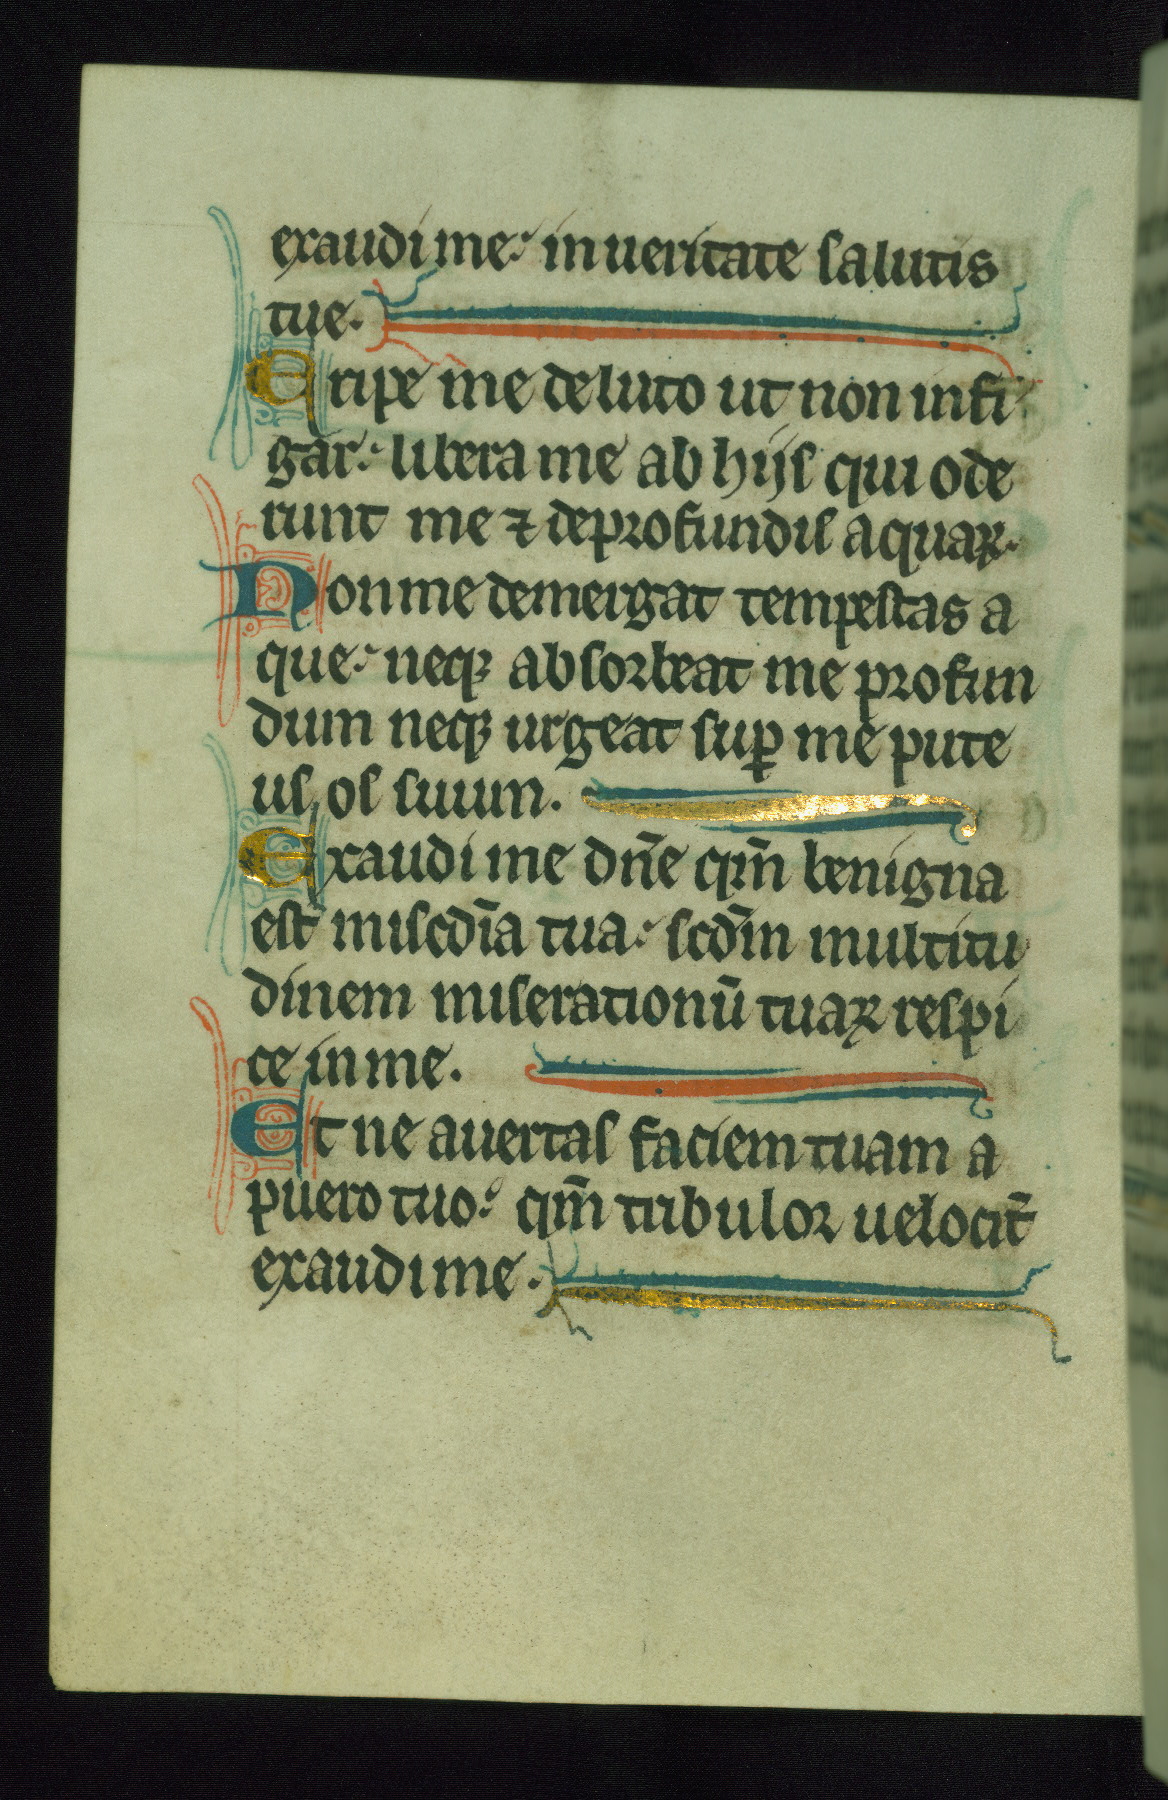 exaudi me. in ueritate salutis
tue.
Eripe me de luto ut non infi
gar. libera me ab hijs qui ode
runt me ⁊ de profundis aquaꝝ.
Non me demergat tempestas a
que. neqꝫ absorbeat me profun
dum neqꝫ urgeat suꝑ me pute
us os suum.
Exaudi me dn̄e qm̄ benigna
est misc̄dia tua. scd̄m multitu
dinem miserationū tuaꝝ respi
ce in me.
Et ne auertas faciem tuam a
puero tuo. qm̄ tribulor uelocit̄
exaudi me.